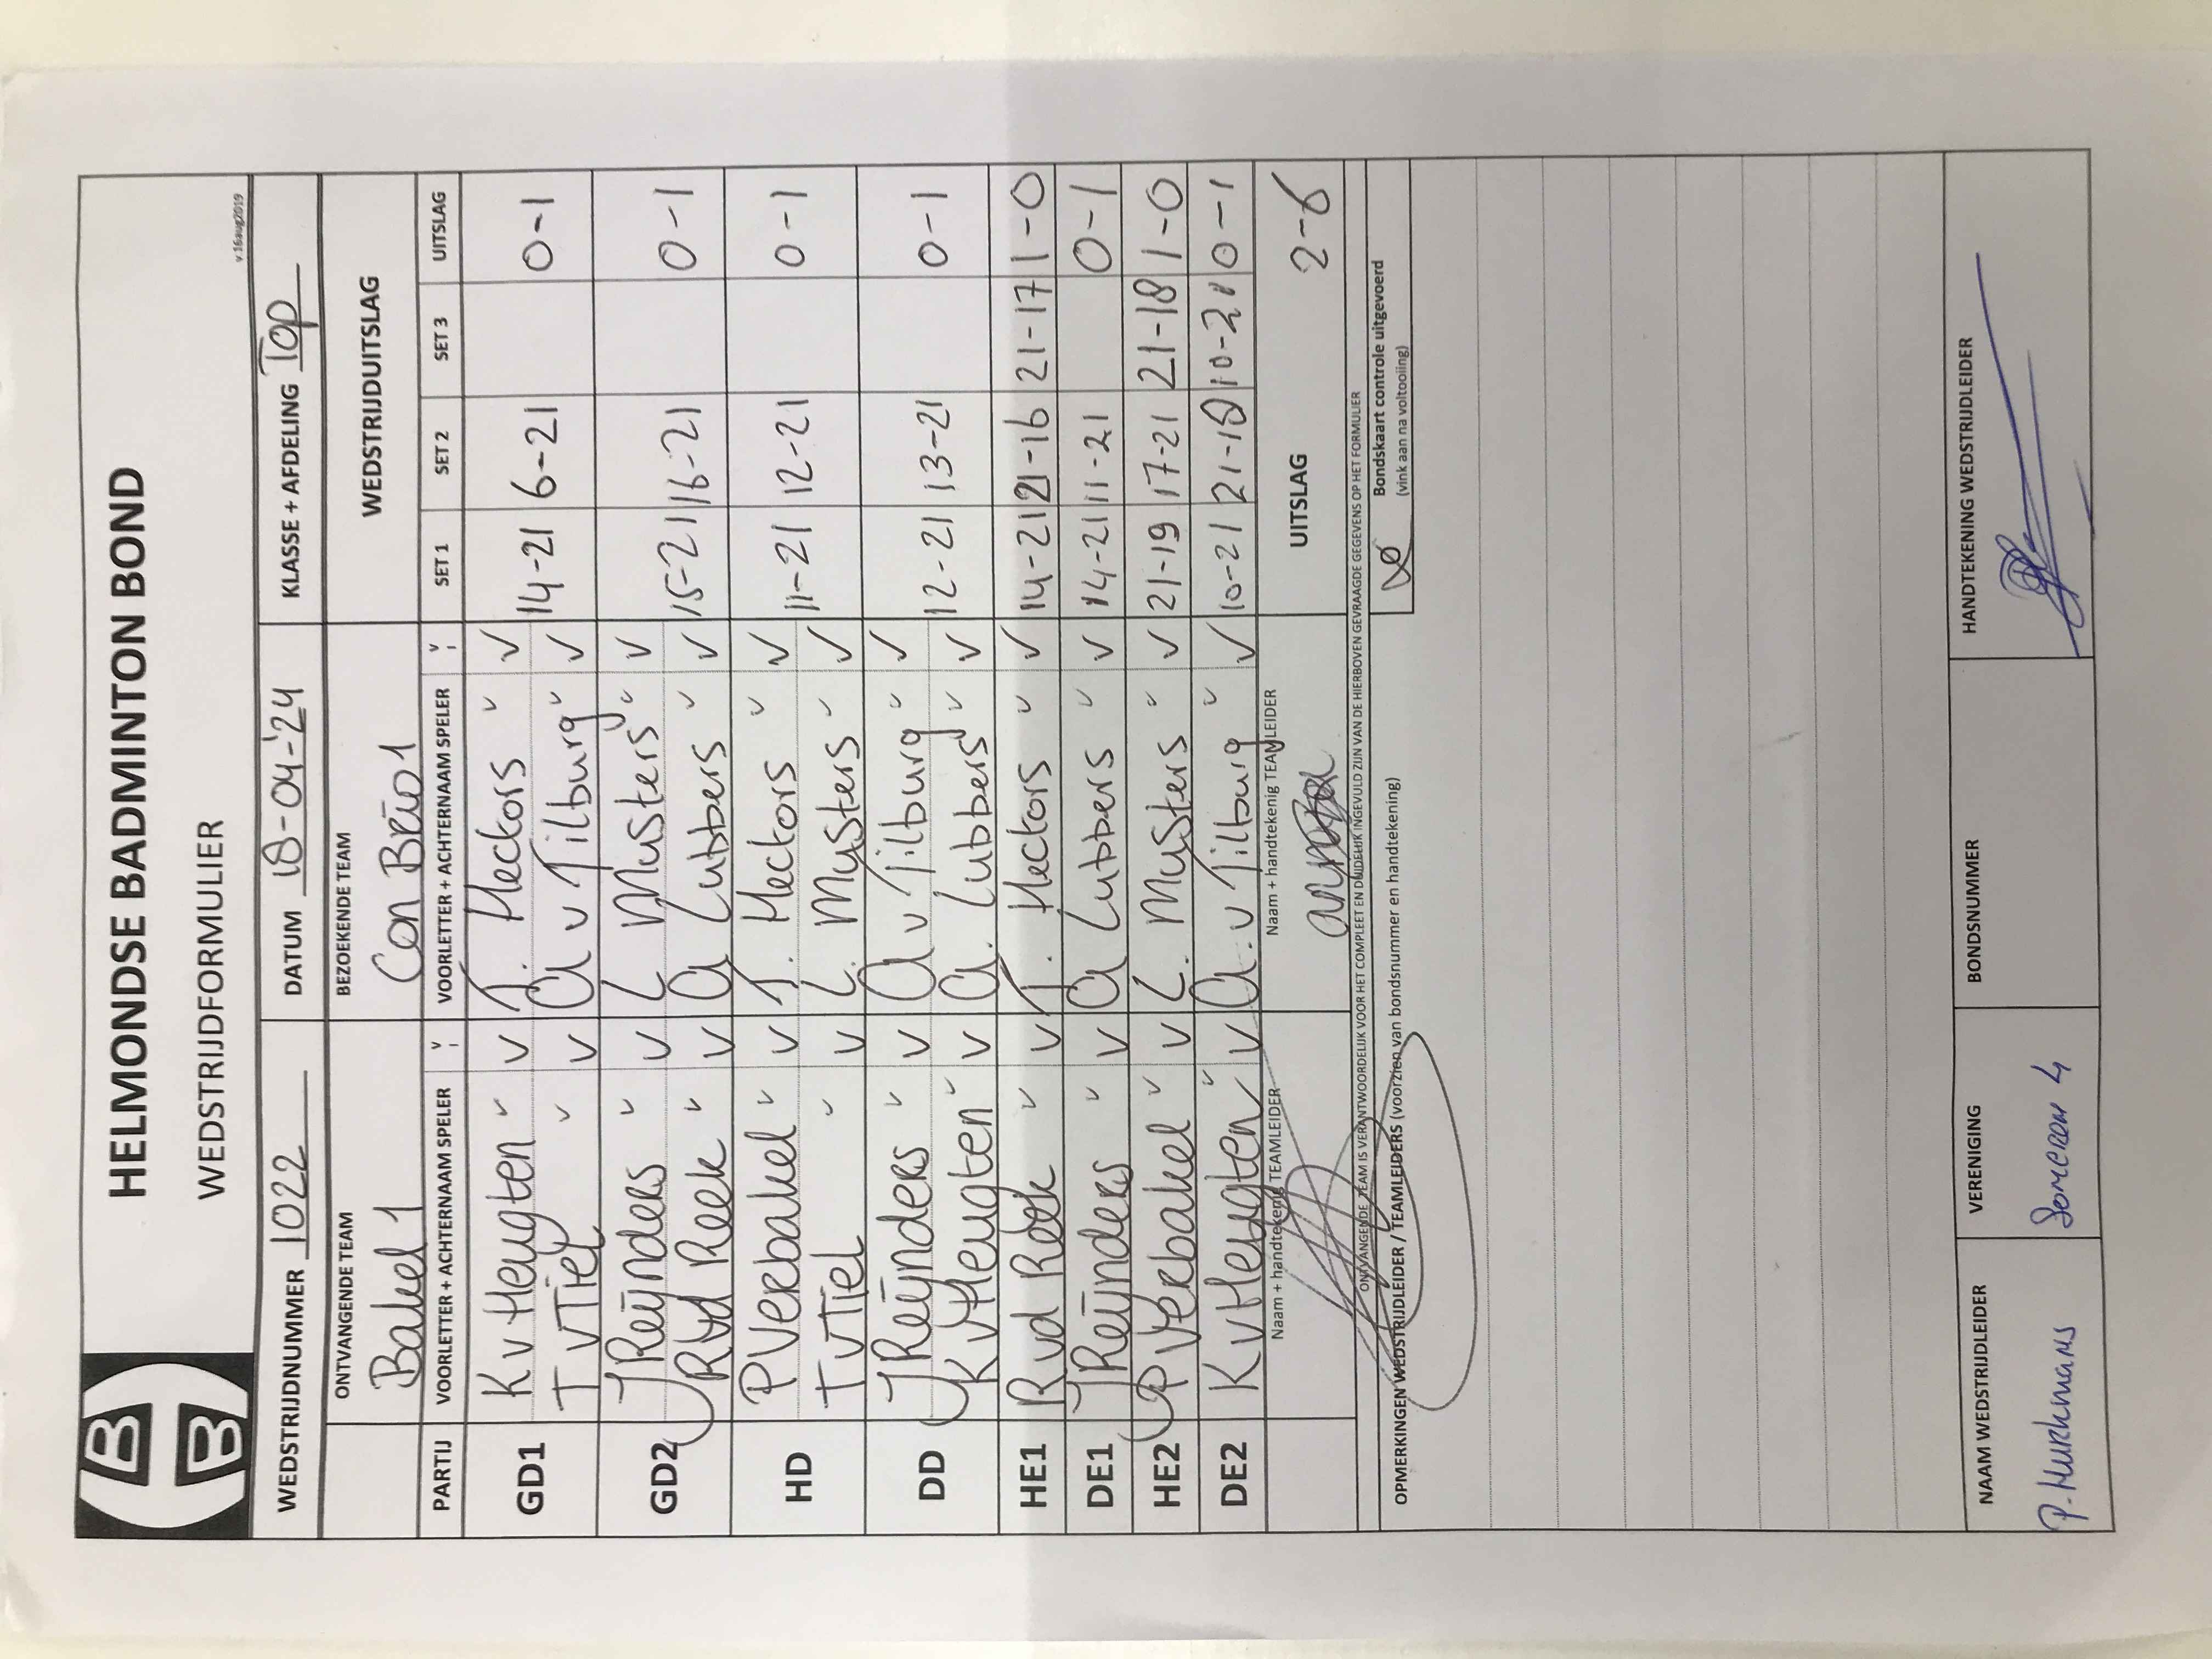 HELMONDSE BADMINTON BOND
WEDSTRIJDFORMULIER
v 16aug2019
WEDSTRIJDNUMMER 1022 DATUM 18-04-'24 KLASSE + AFDELING Top
ONTVANGENDE TEAM BEZOEKENDE TEAM WEDSTRIJDUITSLAG
Bakel 1 Con Brio 1
PARTIJ VOORLETTER + ACHTERNAAM SPELER V VOORLETTER + ACHTERNAAM SPELER V SET 1 SET 2 SET 3 UITSLAG
GD1 K v Heugten v v J. Hectors v v 14-21 6-21 0-1
T v Tiel v v A v Tilburg v v
GD2 J Reijnders v v L Musters v v 15-21 16-21 0-1
R vd Reek v v A Lubbers v v
HD P Verbakel v v J. Hectors v v 11-21 12-21 0-1
T v Tiel v v L. Musters v v
DD J Reijnders v v A v Tilburg v v 12-21 13-21 0-1
K v Heugten v v A. Lubbers v v
HE1 R vd Reek v v J. Hectors v v 14-21 21-16 21-17 1-0
DE1 J Reijnders v v A Lubbers v v 14-21 11-21 0-1
HE2 P Verbakel v v L. Musters v v 21-19 17-21 21-18 1-0
DE2 K v Heugten v v A. v Tilburg v v 10-21 21-18 10-21 0-1
Naam + handtekenig TEAMLEIDER Naam + handtekenig TEAMLEIDER UITSLAG 2-6
ONTVANGENDE TEAM IS VERANTWOORDELIJK VOOR HET COMPLEET EN DUIDELIJK INGEVULD ZIJN VAN DE HIERBOVEN GEVRAAGDE GEGEVENS OP HET FORMULIER
OPMERKINGEN WEDSTRIJDLEIDER / TEAMLEIDERS (voorzien van bondsnummer en handtekening) Bondskaart controle uitgevoerd
(vink aan na voltooiing)
NAAM WEDSTRIJDLEIDER VERENIGING BONDSNUMMER HANDTEKENING WEDSTRIJDLEIDER
P. Hurkmans Someren 4